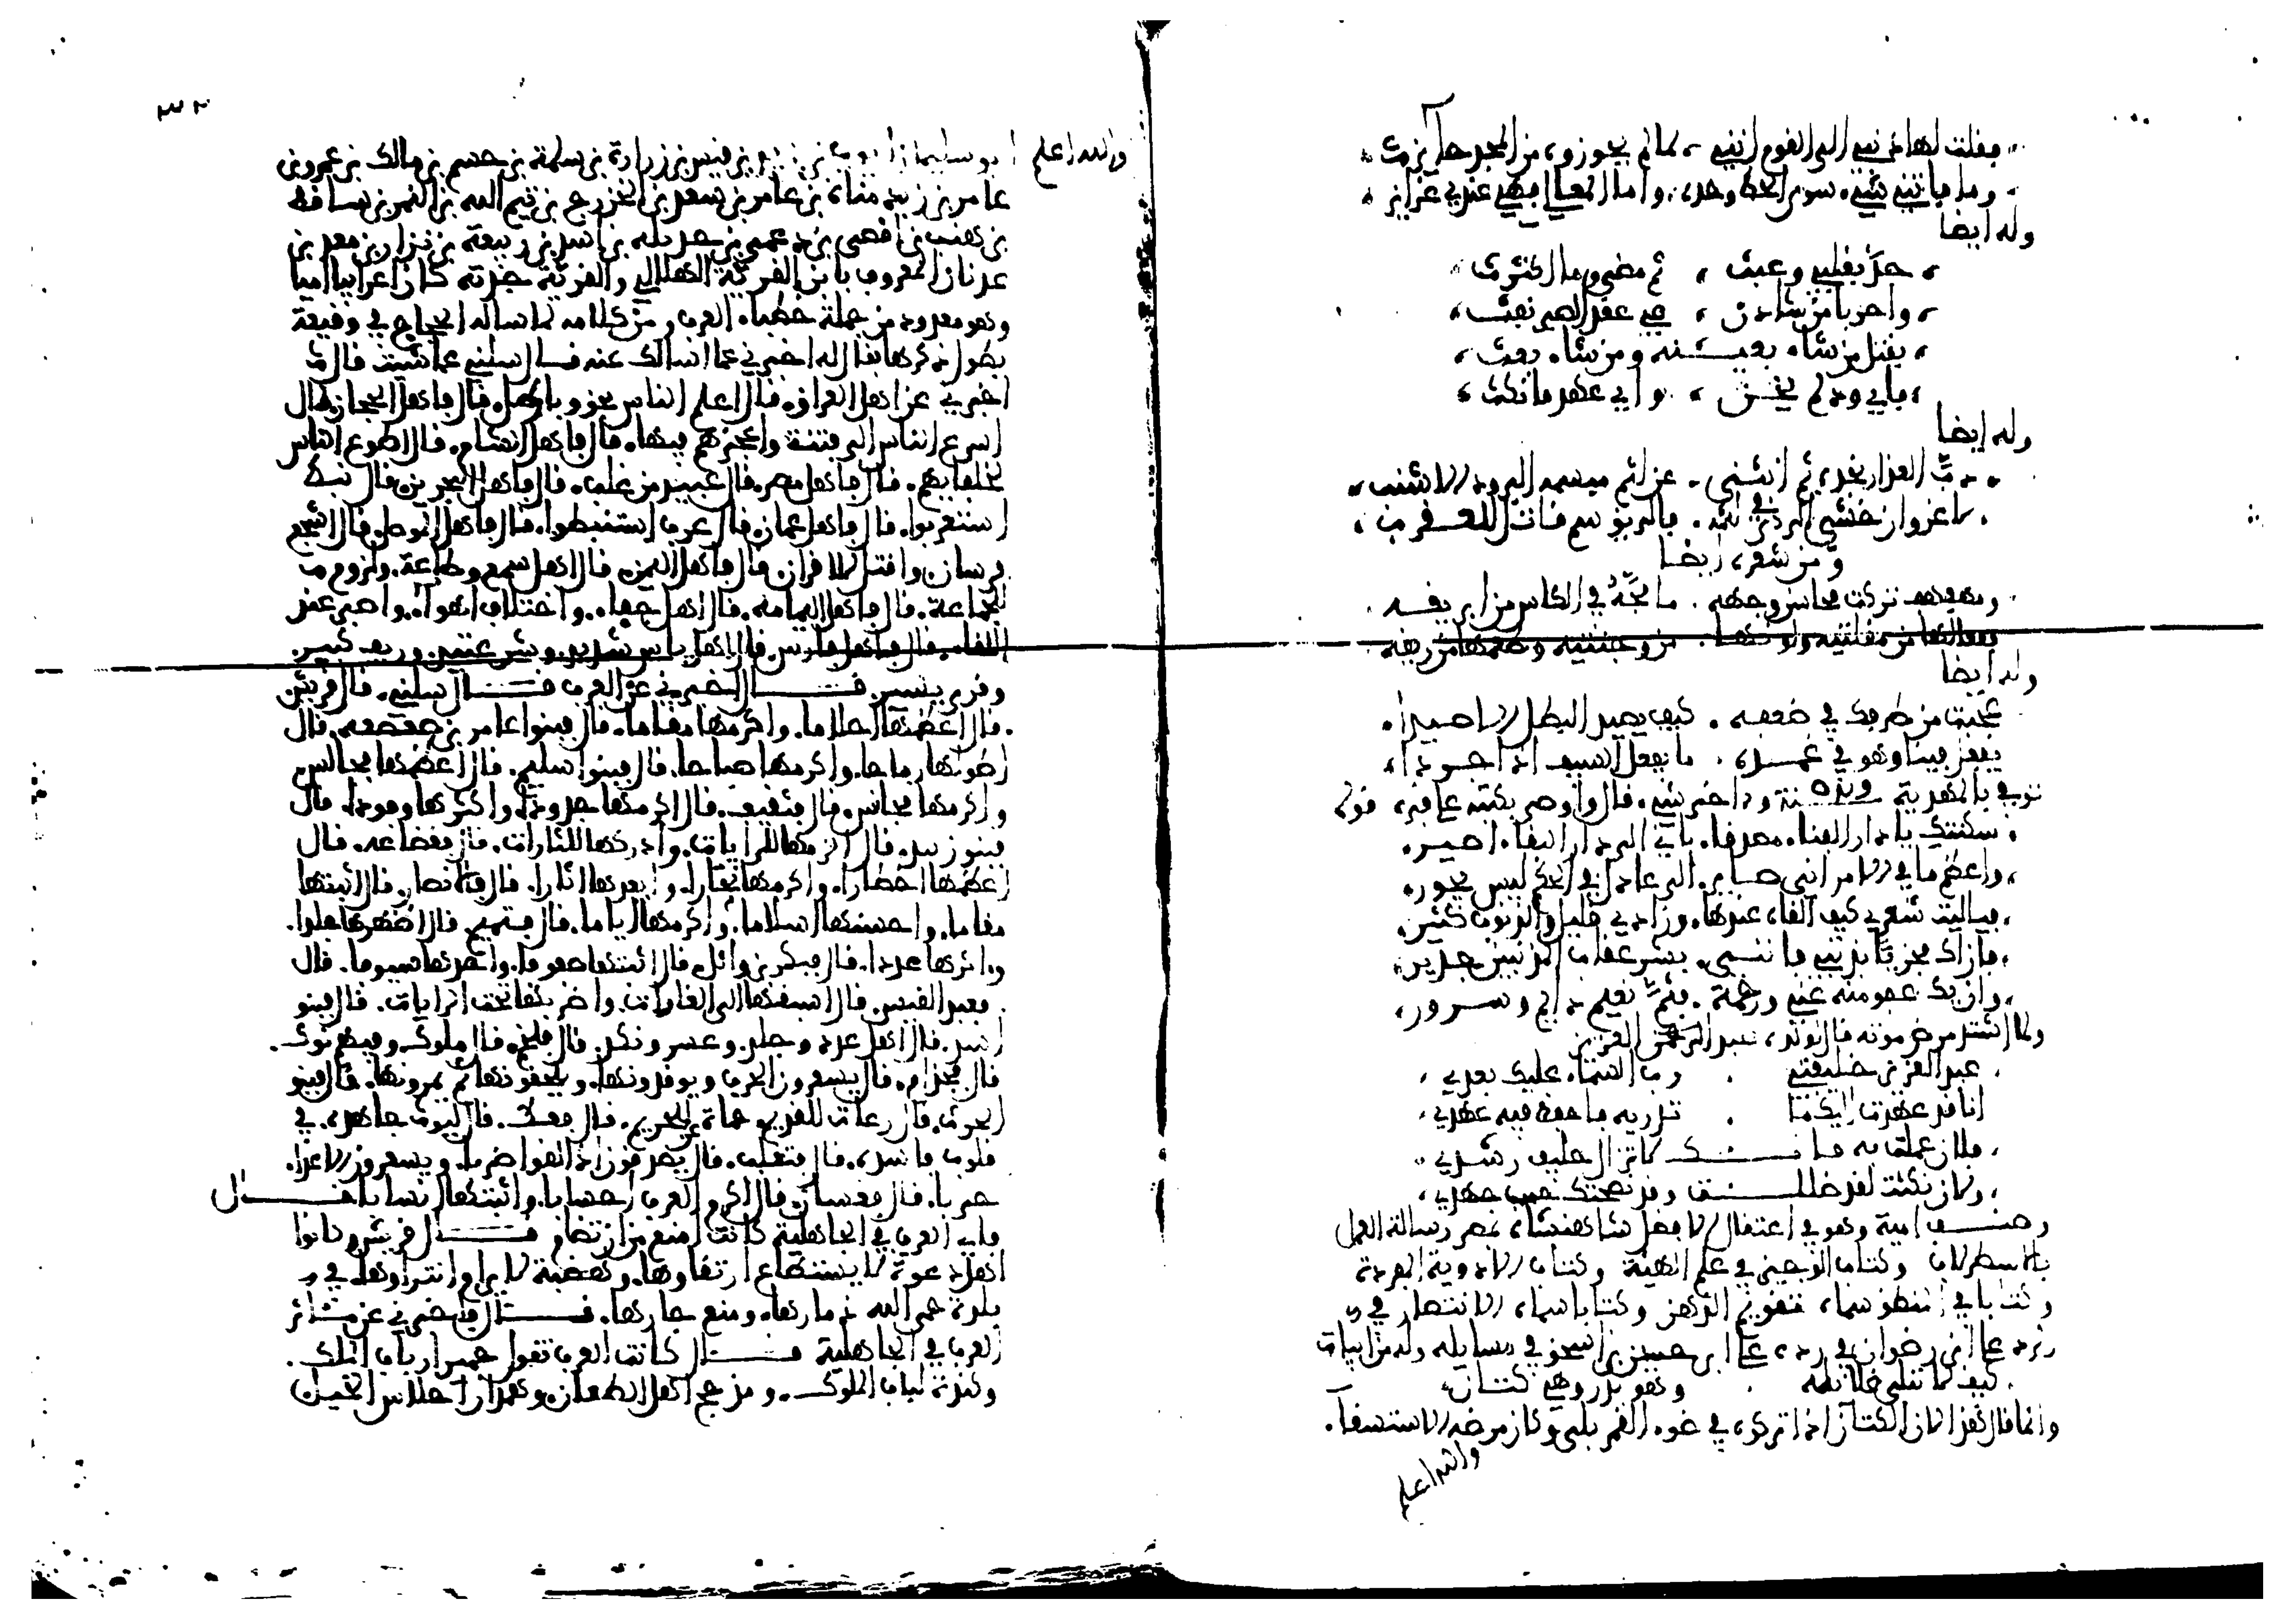 فقلت لها ذنبي الى القوم انني ، لما لم يحوزوه من المجد حايز
وما فاتني شيء سوى الحظ وحده ، واما المعالي فهي عندي غرايز
وله ايضا
جد بقلبي وعبث ، ثم مضى وما اكترث
واحربا من شادن ، في عقد الصبر نفث
يقتل من شاء بعينيه ومن شاء بعث
فاي ود لم يخن ، واي عهد ما نكث
وله ايضا
دب العذار بخده ثم انثنى ، عن لثم مبسمه البرود الاشنب
لا غرو ان خشي الردى في لثمه ، فالريق سم قاتل للعقرب
ومن شعره ايضا
ومهفهف تركت محاسن وجهه ، ما مجه في الكاس من ابريقه
ففعالها من مقلتيه ولونها ، من وجنتيه وطعمها من ريقه
وله ايضا
عجبت من طرفك في ضعفه ، كيف يصيد البطل الاصيدا
يفعل فينا وهو في غمده ، ما يفعل السيف اذا جردا
توفي بالمهدية سنة واخر شيء قال واوصى بكتبه على قبره قوله
سكنتك يا دار الفناء مصدقا ، باني الى دار البقاء اصير
واعظم ما في الامر اني صاير ، الى عادل في الحكم ليس يجور
فيا ليت شعري كيف القاه عندها ، وزادي قليل والذنوب كثير
فان اك مجزيا بذنبي فانني ، بشر عقاب المذنبين جدير
وان يك عفو منه عني ورحمة ، فثم نعيم دايم وسرور
ولما اشتد مرض موته قال لولده عبد العزيز
عبد العزيز خليفتي ، رب السماء عليك بعدي
انا قد عهدت اليك ما ، تدريه فاحفظ فيه عهدي
فلان عملت به فانك لا تزال حليف رشدي
ولان نكثت لقد ضللت وقد نصحتك حسب جهدي
وصنف امية وهو في اعتقال الافضل شاهنشاه بمصر رسالة العمل
بالاسطرلاب وكتاب الوجيز في علم الهيئة وكتاب الادوية المفردة
وكتابا في المنطق سماه تقويم الذهن وكتابا سماه الانتصار في
رده على ابن رضوان في رده على حنين بن اسحق في مسايله وله من ابيات
كيف لا تبلى غلايله ، وهو بدر وهي كتان
وانما قال هذا لان الكتان اذا تركوه في ضوء القمر بلي وكان مرضه الاستسقا
والله اعلم
٣٢
والله اعلم
ابو سليمان ايوب بن زيد بن قيس بن زرارة بن سلمة بن جشم بن مالك بن عمرو بن
عامر بن زيد مناة بن عامر بن سعد بن الخزرج بن تيم الله بن النمر بن قاسط
بن هنب بن افصى بن دعمي بن جديلة بن اسد بن ربيعة بن نزار بن معد بن
عدنان المعروف بابن القرية الهلالي والقرية جدته كان اعرابيا اميا
وهو معدود من جملة خطباء العرب ومن كلامه لما ساله الحجاج في وقيعة
يطول ذكرها فقال له اخبرني عما اسالك عنه قال سلني عما شيت قال
اخبرني عن اهل العراق قال اعلم الناس بحق وباطل قال فاهل الحجاز قال
اسرع الناس الى فتنة واعجزهم فيها قال فاهل الشام قال اطوع الناس
لخلفايهم قال فاهل مصر قال عبيد من غلب قال فاهل البحرين قال نبط
استعربوا قال فاهل عمان قال عرب استنبطوا قال فاهل الموصل قال اشجع
فرسان واقتل للاقران قال فاهل اليمن قال اهل سمع وطاعة ولزوم
الجماعة قال فاهل اليمامة قال اهل جفاء واختلاف اهواء واصبر عند
اللقاء قال فاهل فارس قال اهل باس شديد وشر عتيد وريف كبير
وقرى يسير قال اخبرني عن العرب قال سلني قال قريش
قال اعظمها احلاما واكرمها مقاما قال فبنوا عامر بن صعصعة قال
اطولها رماحا واكرمها صباحا قال فبنوا سليم قال اعظمها مجالس
واكرمها محابس قال فثقيف قال اكرمها جدودا واكثرها وفودا قال
فبنو زبيد قال الزمها للرايات وادركها للثارات قال فقضاعة قال
اعظمها اخطارا واكرمها نجارا وابعدها اثارا قال فالانصار قال اثبتها
مقاما واحسنها اسلاما واكرمها اياما قال فتميم قال اظهرها جلدا
واثراها عددا قال فبكر بن وائل قال اثبتها صفوفا واحدها سيوفا قال
فعبد القيس قال اسبقها الى الغايات واضربها تحت الرايات قال فبنو
اسد قال اهل عدد وجلد وعسر ونكد قال فلخم قال ملوك وفيهم نوك
قال فجذام قال يسعرون الحرب ويوقدونها ويلقحونها ثم يمرونها قال فبنو
الحرث قال رعاة للقديم حماة عن الحريم قال فعك قال ليوث جاهدة في
قلوب فاسدة قال فتغلب قال يصدقون اذا لقوا ضربا ويسعرون للاعداء
حربا قال فغسان قال اكرم العرب احسابا واثبتها انسابا قال
فاي العرب في الجاهلية كانت امنع من ان تضام قال قريش كانوا
اهل دعوة لا يستطاع ارتقاوها وهضبة لا يرام انتزاوها في
بلدة حمى الله ذمارها ومنع جارها قال فاخبرني عن مآثر
العرب في الجاهلية قال كانت العرب تقول حمير ارباب الملك
وكندة لباب الملوك ومذحج اهل الطعان وهمدان احلاس الخيل